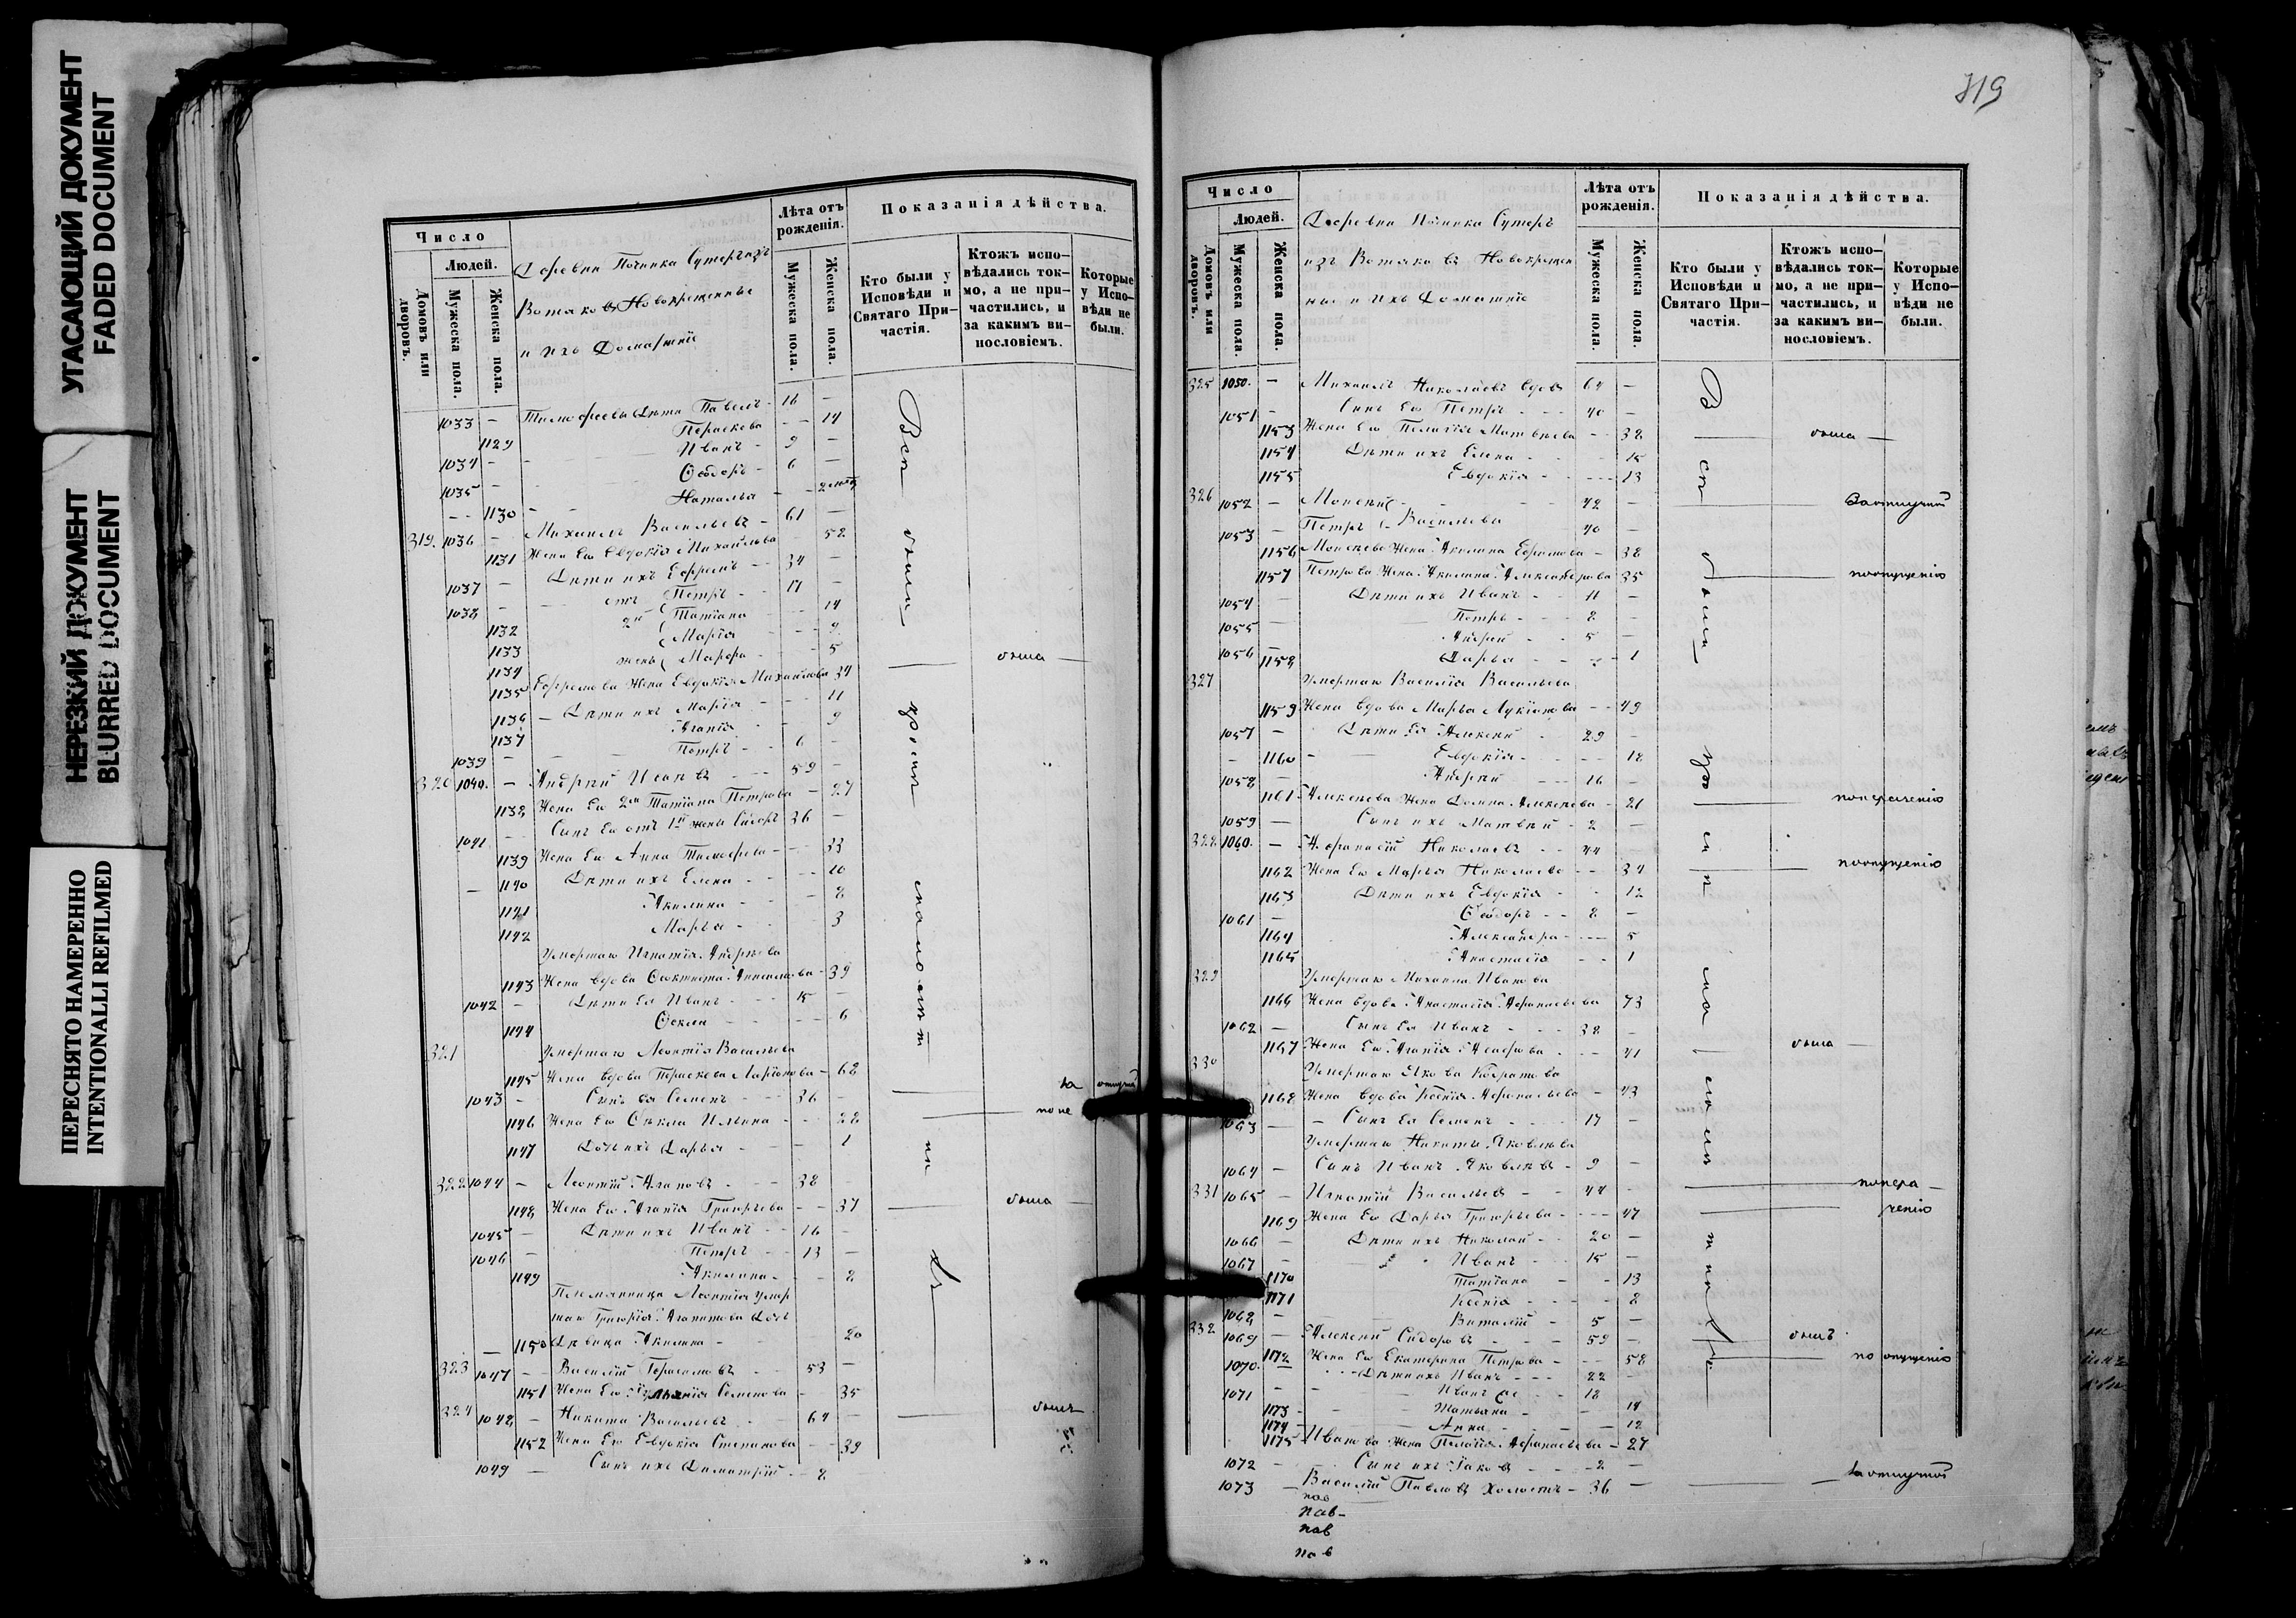 УГАСАЮЩИЙ ДОКУМЕНТ
FADED DOCUMENT
НЕРЕЗКИЙ ДОКУМЕНТ
BLURRED DOCUMENT
ПЕРЕСНЯТО НАМЕРЕННО
INTENTIONALLI REFILMED
Число
Людей.
Домовъ или дворовъ.
Мужеска пола.
Женска пола.
Деревни Починка Сутеръ изъ
Вотяковъ Новокрещенные
и ихъ Домашніе
Лѣта отъ рожденія.
Мужеска пола.
Женска пола.
Показанія дѣйства.
Кто были у Исповѣди и Святаго При-частія.
Ктожъ испо-вѣдались ток-мо, а не при-частились, и за какимъ ви-нословіемъ.
Которые у Испо-вѣди не были.
1033 — Тимофеевы Дѣти Павелъ - 16 —
1129 Параскева - - 14
1034 - Иванъ - 9 —
1035 - Ѳеодоръ - 6 —
1130 - Наталья -
319. 1036 - Михаилъ Васильевъ - 61 —
1131 Жена Его Евдокія Михайлова 52
1037 — Дѣти ихъ Ефремъ - 34 —
1038 - отъ Петръ - 11 —
1132 2й Татіана 14
1133 Марія - 9
1134 жены Марѳа - 5
1135 Ефремова Жена Евдокія Михайлова 34 — была —
1136 — Дѣти ихъ Марія - 11
1137 Агапія - 9
1039 — Петръ - 6 —
320 1040. — Андрей Исаевъ - 59 —
1138 Жена Его 2я Татіана Петрова - 27
1041 - Сынъ Его отъ 1й жены Сидоръ 36 —
1139 Жена Его Анна Тимофеева - 33
1140 Дѣти ихъ Елена - 10
1141 Акилина - 8
1142 Марья - 3
Умершаго Игнатія Андреева
1143 Жена вдова Ѳеоктиста - 39
1042 - Дѣти Ея Иванъ - 15
1144 Ѳекла - 6
321 Умершаго Леонтія Васильева
1145 Жена вдова Параскева Ларіонова - 62
1043 - Сынъ ея Семенъ - 36 —
1146 Жена Его Ѳекла Ильина - 28
1147 Дочь ихъ Дарья - 1
322 1044 — Леонтій Агаповъ - 38 -
1148 Жена Его Агапія Григорьева - 37 — была —
1045 — Дѣти ихъ Иванъ - 16 —
1046 — Петръ - 13 —
1149 Акилина - 8
Племянница Леонтія умер
шаго Григорія Агапитова Дочь
1150 Дѣвица Акилина - 20
323 1047 - Василій Герасимовъ - 53 —
1151 Жена Его Семенова - 35
324 1048 — Никита Васильевъ - 64 — былъ
1152 Жена Его Евдокія Степанова - 39
1049 — Сынъ ихъ Димитрій - 8
Всѣ были у Исп
719
Число
Людей.
Домовъ или дворовъ.
Мужеска пола.
Женска пола.
Деревни Починка Сутеръ
изъ Вотяковъ Новокрещен
ные и ихъ Домашніе
Лѣта отъ рожденія.
Мужеска пола.
Женска пола.
Показанія дѣйства.
Кто были у Исповѣди и Святаго При-частія.
Ктожъ испо-вѣдались ток-мо, а не при-частились, и за какимъ ви-нословіемъ.
Которые у Испо-вѣди не были.
325 1050. — Михаилъ Николаевъ вдовъ 64 —
1051 - Сынъ Его Петръ - 40 —
1153 Жена Его Пелагія Матвѣева - 38 — была —
1154 Дѣти ихъ Елена - 15
1155 Евдокія - 13
326 1052 — Моисей - 42 — За отлучкой
1053 — Петръ Васильевы 40 —
1156 Моисеева Жена Акилина Ефремова - 38
1157 Петрова Жена Акилина Александрова 35 — по опущенію
1054 — Дѣти ихъ Иванъ - 11 —
1055 — Петръ - 8 —
1056 — Андрей - 5 —
1158 Дарья - 1
327 Умершаго Василія Васильева
1159 Жена вдова Марѳа Лукіанова - 49
1057 — Дѣти Ея Алексей - 29 —
1160 - Евдокія - 18
1058 — Андрей - 16 —
1161 Алексеева Жена Домна Алексеева - 21 — по нерачению
1059 — Сынъ ихъ Матвей - 2 —
328 1060. — Афанасій Николаевъ - 44 —
1162 Жена Его Марья Николаева - 34 — по опущенію
1163 Дѣти ихъ Евдокія - 12
1061 — Ѳеодоръ - 8 —
1164 Александра - 5
1165 Анастасія - 1
329 Умершаго Михаила Иванова
1166 Жена вдова Анастасія Афанасьева 73
1062 — Сынъ Ея Иванъ - 38 —
1167 Жена Его Агапія - 41 — была —
330 Умершаго Якова Кондратова
1168 Жена вдова Ксенія Афанасьева - 43
1063 — Сынъ Ея Семенъ - 17 —
Умершаго Никиты Яковлева
1064 — Сынъ Иванъ Яковлевъ - 9 —
331 1065 — Игнатій Васильевъ - 44 — по нера-
1169 Жена Его Дарья Григорьева - 47 — ченію
1066 — Дѣти ихъ Николай - 20 —
1067 — Иванъ - 15 —
1170 Татіана - 13
1171 Ксенія - 8
1068 — Виталій - 5 —
332 1069 — Алексей Сидоровъ - 59 — былъ
1172 Жена Его Екатерина Петрова - 58 — по опущенію
1070. — Дѣти ихъ Иванъ - 22 —
1071 — Иванъ - 18
1173 - Татьяна - 14
1174 - Анна - 12
1175 Иванова Жена Пелагія Афанасьева - 27
1072 — Сынъ ихъ Іаковъ - 2 —
1073 — Василій Павловъ Холостъ - 36 — За отлучкой
пав
пав-
пав
пав